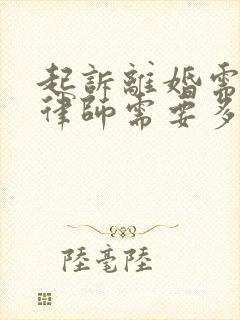 起訴離婚需
律師需要多
陸毫陸